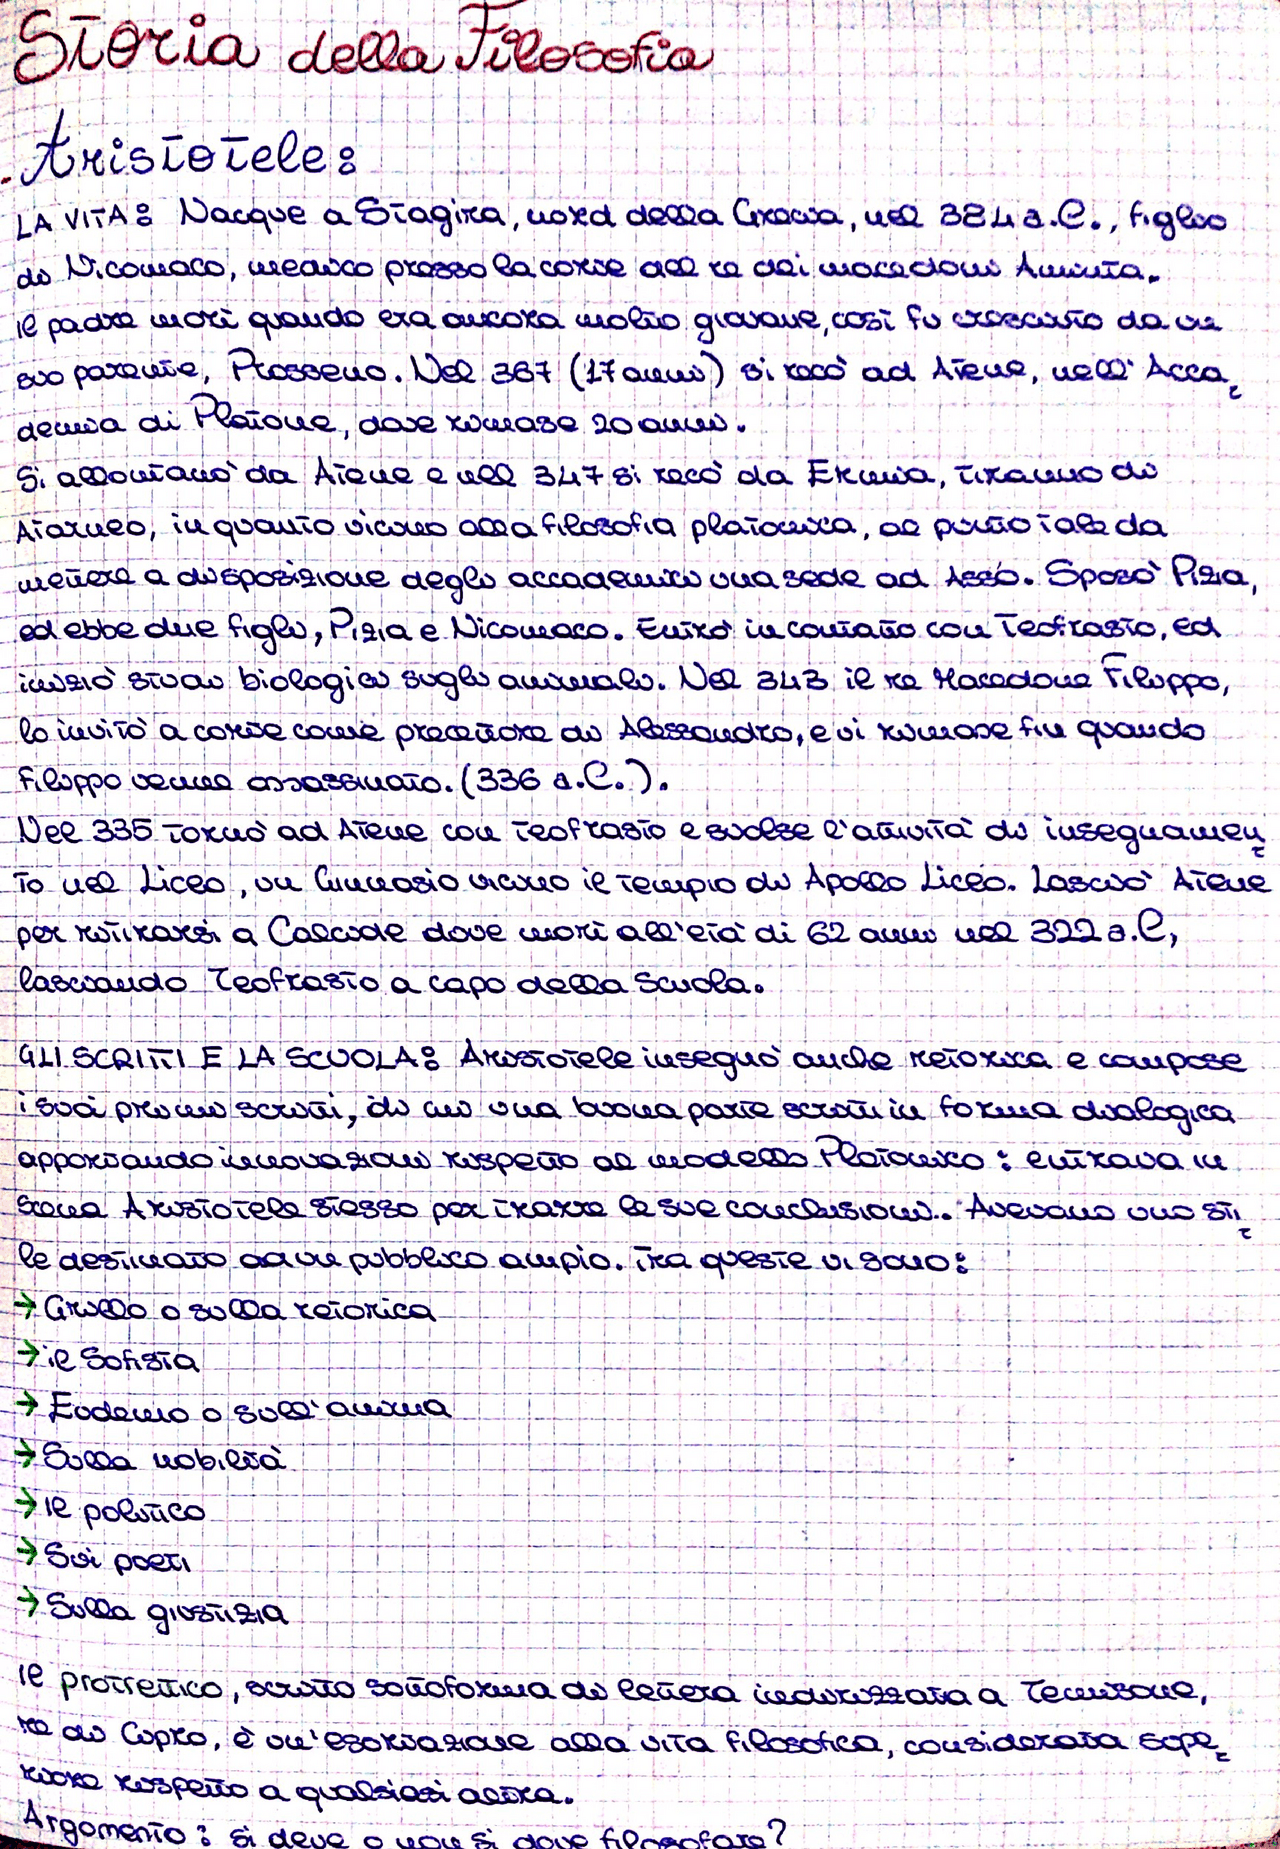 Storia della Filosofia
Aristotele:
LA VITA: Nacque a Stagira, nord della Grecia, nel 384 a.C., figlio
di Nicomaco, medico presso la corte del re dei macedoni Aminta.
il padre morì quando era ancora molto giovane, così fu cresciuto da un
suo parente, Prosseno. Nel 367 (17 anni) si recò ad Atene, nell'Acca-
demia di Platone, dove rimase 20 anni.
Si allontanò da Atene e nel 347 si recò da Ermia, tiranno di
Atarneo, in quanto vicino alla filosofia platonica, al punto tale da
mettere a disposizione degli accademici una sede ad Asso. Sposò Pizia,
ed ebbe due figli, Pizia e Nicomaco. Entrò in contatto con Teofrasto, ed
iniziò studi biologici sugli animali. Nel 343 il re Macedone Filippo,
lo invitò a corte come precettore di Alessandro, e vi rimase fin quando
Filippo venne assassinato. (336 a.C.).
Nel 335 tornò ad Atene con Teofrasto e svolse l'attività di insegnamen-
to nel Liceo, un Ginnasio vicino il tempio di Apollo Liceo. Lasciò Atene
per ritirarsi a Calcide dove morì all'età di 62 anni nel 322 a.C,
lasciando Teofrasto a capo della Scuola.
GLI SCRITTI E LA SCUOLA: Aristotele insegnò anche retorica e compose
i suoi primi scritti, di cui una buona parte scritti in forma dialogica
apportando innovazioni rispetto al modello Platonico: entrava in
scena Aristotele stesso per trarre le sue conclusioni.. Avevano uno sti-
le destinato ad un pubblico ampio. Tra queste vi sono:
→ Grillo o sulla retorica
→ il Sofista
→ Eudemo o sull'anima
→ Sulla nobiltà
→ Il politico
→ Sui poeti
→ Sulla giustizia
Il protrettico, scritto sottoforma di lettera indirizzata a Temisone,
re di Cipro, è un'esortazione alla vita filosofica, considerata supe-
riore rispetto a qualsiasi altra.
Argomento: si deve o non si deve filosofare?